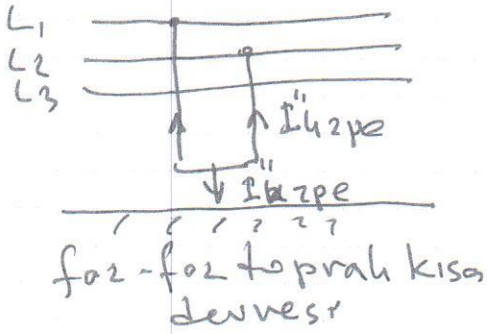 L1
L2
L3
I"k2pe
I"k2pe
faz-faz toprak kısa
devresi